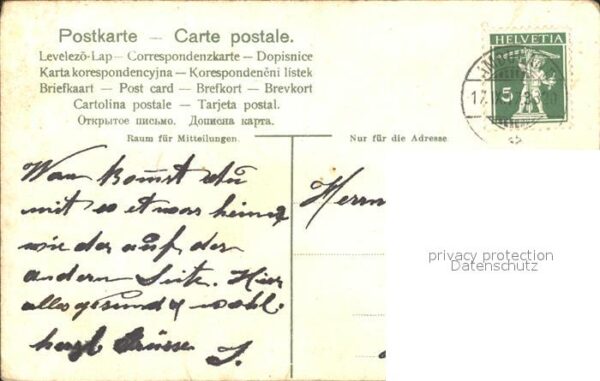 Postkarte — Carte postale.
Levelezö-Lap — Correspondenzkarte — Dopisnice
Karta korespondencyjna — Korespondenční lístek
Briefkaart — Post card — Brefkort — Brevkort
Cartolina postale — Tarjeta postal.
Открытое письмо. Дописна карта.
Raum für Mitteilungen.
Nur für die Adresse.
HELVETIA
5
Wan kommst du
mit so etwas heim
wie der auf der
andern Seite. Hier
alles gesund & wohl.
herzl Grüsse J.
Herrn
privacy protection
Datenschutz